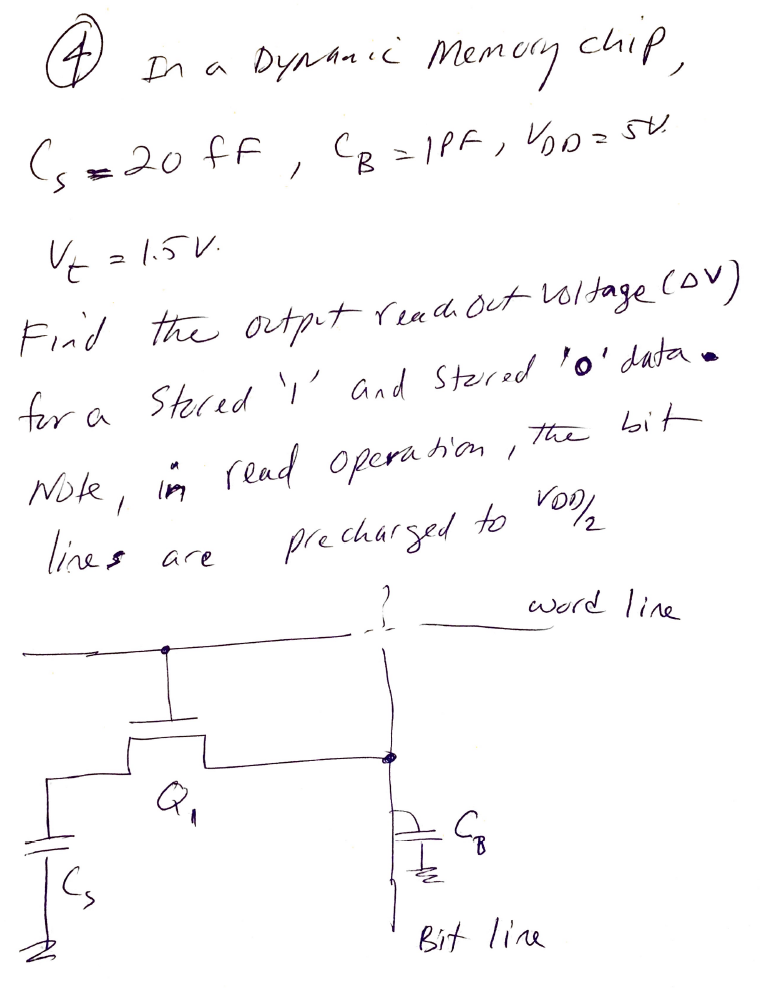 ④ In a Dynamic Memory chip,
Cs = 20 fF, CB = 1PF, VDD = 5V.
Vt = 1.5V.
Find the output readout voltage (ΔV)
for a stored '1' and stored '0' data.
Note, in read operation, the bit
lines are precharged to VDD/2
word line
Q1
CB
Cs
Bit line